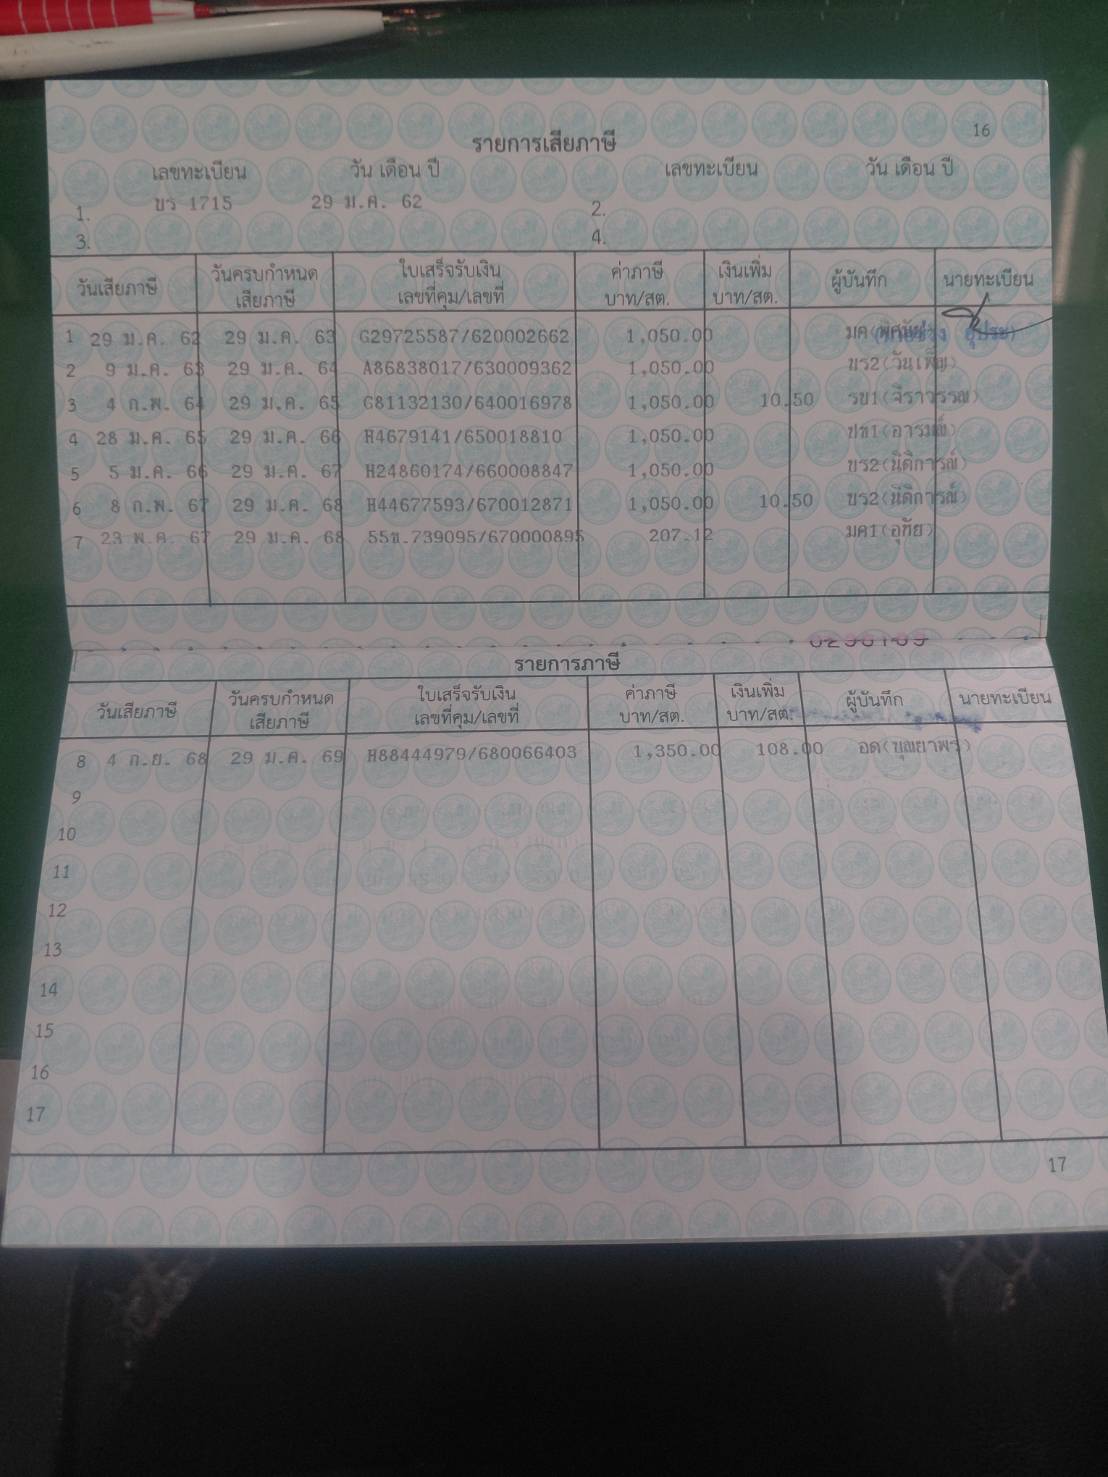 16
รายการเสียภาษี
เลขทะเบียน วัน เดือน ปี เลขทะเบียน วัน เดือน ปี
1. ขร 1715 29 ม.ค. 62 2.
3. 4.
วันเสียภาษี วันครบกำหนดเสียภาษี ใบเสร็จรับเงิน เลขที่คุม/เลขที่ ค่าภาษี บาท/สต. เงินเพิ่ม บาท/สต. ผู้บันทึก นายทะเบียน
1 29 ม.ค. 62 29 ม.ค. 63 G29725587/620002662 1,050.00 มค
2 9 ม.ค. 63 29 ม.ค. 64 A86838017/630009362 1,050.00 ขร2(วันเพ็ญ)
3 4 ก.พ. 64 29 ม.ค. 65 G81132130/640016978 1,050.00 10.50 รข1(จิราวรรณ)
4 28 ม.ค. 65 29 ม.ค. 66 H4679141/650018810 1,050.00 ปข1(อารมณ์)
5 5 ม.ค. 66 29 ม.ค. 67 H24860174/660008847 1,050.00 ขร2(นิติการณ์)
6 8 ก.พ. 67 29 ม.ค. 68 H44677593/670012871 1,050.00 10.50 ขร2(นิติการณ์)
7 23 พ.ค. 67 29 ม.ค. 68 55ข.739095/670000895 207.12 มค1(อุทัย)
รายการภาษี
วันเสียภาษี วันครบกำหนดเสียภาษี ใบเสร็จรับเงิน เลขที่คุม/เลขที่ ค่าภาษี บาท/สต. เงินเพิ่ม บาท/สต. ผู้บันทึก นายทะเบียน
8 4 ก.ย. 68 29 ม.ค. 69 H88444979/680066403 1,350.00 108.00 อด(บุณยาพร)
9
10
11
12
13
14
15
16
17
17